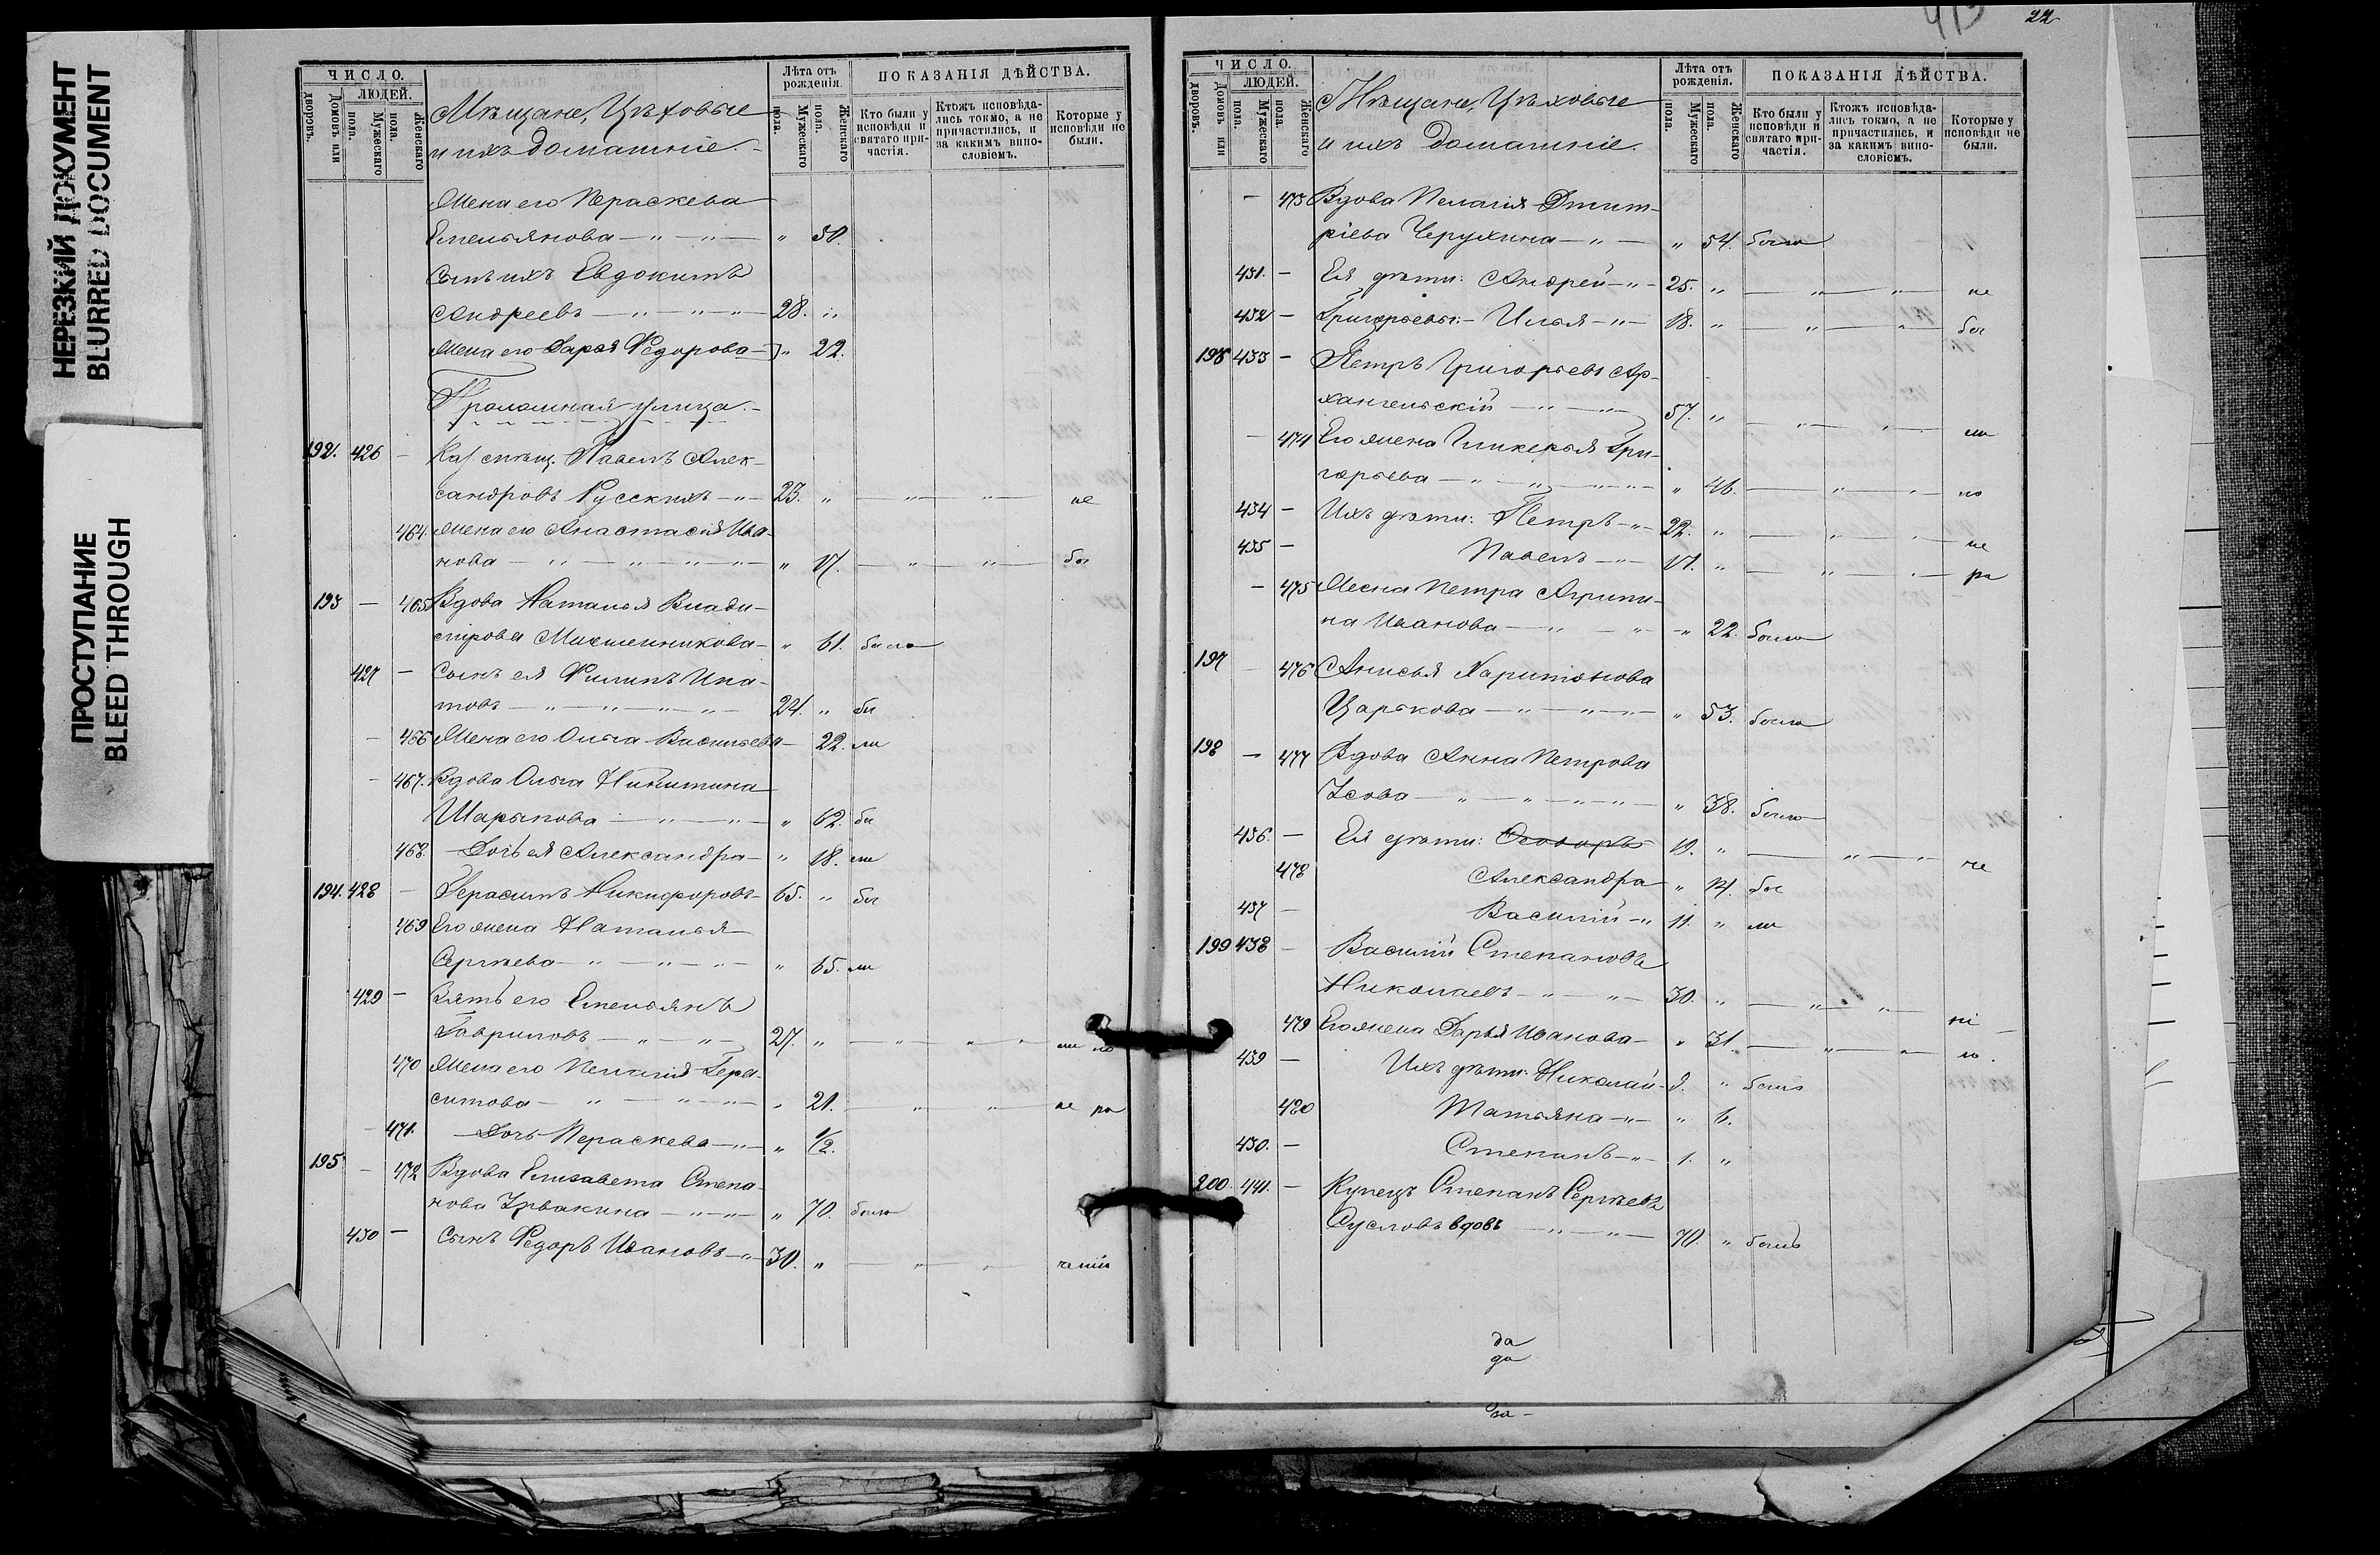 НЕРЕЗКИЙ ДОКУМЕНТ
BLURRED DOCUMENT
ПРОСТУПАНИЕ
BLEED THROUGH
ЧИСЛО.
ЛЮДЕЙ.
Домовъ или дворовъ.
Мужескаго пола.
Женскаго пола.
Мѣщане, Цѣховые
и ихъ домашніе
Лѣта отъ рожденія.
Мужескаго пола.
Женскаго пола.
ПОКАЗАНІЯ ДѢЙСТВА.
Кто были у исповѣди и святаго причастія.
Ктожъ исповѣдались токмо, а не причастились, и за какимъ винословіемъ.
Которые у исповѣди не были.
Жена его Параскева
Емельянова — " — " — " 50.
Сынъ ихъ Евдокимъ
Андреевъ — " — " — " 28. "
Жена его Дарья Ѳедорова — " 22.
Проломная улица.
192. 426 — Каз. мѣщ. Павелъ Алек-
сандровъ Русскихъ — " — 23. " — " — " — не
464. Жена его Анастасія Ива-
нова — " — " — " — " 17. — " — " — бы
193 — 465 Вдова Наталья Влади-
мірова Мышенникова — " 61. была
427 — Сынъ ея Филипъ Ипа-
товъ — " — " — " — 24. " бы
— 466 Жена его Ольга Васильева — 22. ли
— 467. Вдова Ольга Никитина
Шарыпова — " — " — " 62. бы
468. Дочь ея Александра — " 18. ли
194. 428 — Герасимъ Никифоровъ 65. " бы
469 Его жена Наталья
Сергѣева — " — " — " 65. ли
429 — Зять его Емельянъ
Гавриловъ — " — " — 27. " — " — " — не бы
470 Жена его Пелагія Гера-
симова — " — " — " 21. — " — " — ли
— 471. Дочь Параскева — " — " 1/2.
195 — 472 Вдова Елизавета Степа-
нова Урвакина — " — " — " 70. была
430 — Сынъ Ѳедоръ Ивановъ — " — 30. " — " — "
22
ЧИСЛО.
ЛЮДЕЙ.
Домовъ или дворовъ.
Мужескаго пола.
Женскаго пола.
Мѣщане, Цѣховые
и ихъ домашніе.
Лѣта отъ рожденія.
Мужескаго пола.
Женскаго пола.
ПОКАЗАНІЯ ДѢЙСТВА.
Кто были у исповѣди и святаго причастія.
Ктожъ исповѣдались токмо, а не причастились, и за какимъ винословіемъ.
Которые у исповѣди не были.
— 473 Вдова Пелагія Дмит-
ріева Черухина — " — " 54. была
431. — Ея дѣти: Андрей — " — 25. " — " — " — не
432 — Григорьевы: — Илья — " — 18. " — " — " — бы
196 433 — Петръ Григорьевъ Ар-
хангельскій — " — " — 57. " — " — " — ли
— 474 Его жена Гликерья Гри-
горьева — " — " — " — " 46. — " — " —
434 — Ихъ дѣти: Петръ — " — 22. " — " — " — не
435 — Павелъ — " — 17. " — " — " —
— 475 Жена Петра Агрипи-
на Иванова — " — " — " 22. была
197 — 476 Анисья Харитонова
Царькова — " — " — " 53. была
198 — 477 Вдова Анна Петрова
Усова — " — " — " — " 38. была
436. — Ея дѣти: Ѳеодоръ 19. " — " — " — не
478 Александра " 14. бы
437 — Василій — " 11. " ли
199 438 — Василій Степановъ
Николаевъ — " — " — 30. " — " — " —
479 Его жена Дарья Иванова — " 31. — " — " —
439 — Ихъ дѣти: Николай — 9. " былъ
480 Татьяна — " — " 6.
430. — Степанъ — " — 1. "
200. 441. — Купецъ Степанъ Сергѣевъ
Сусловъ вдовъ — " — " — 70. " былъ
да
да